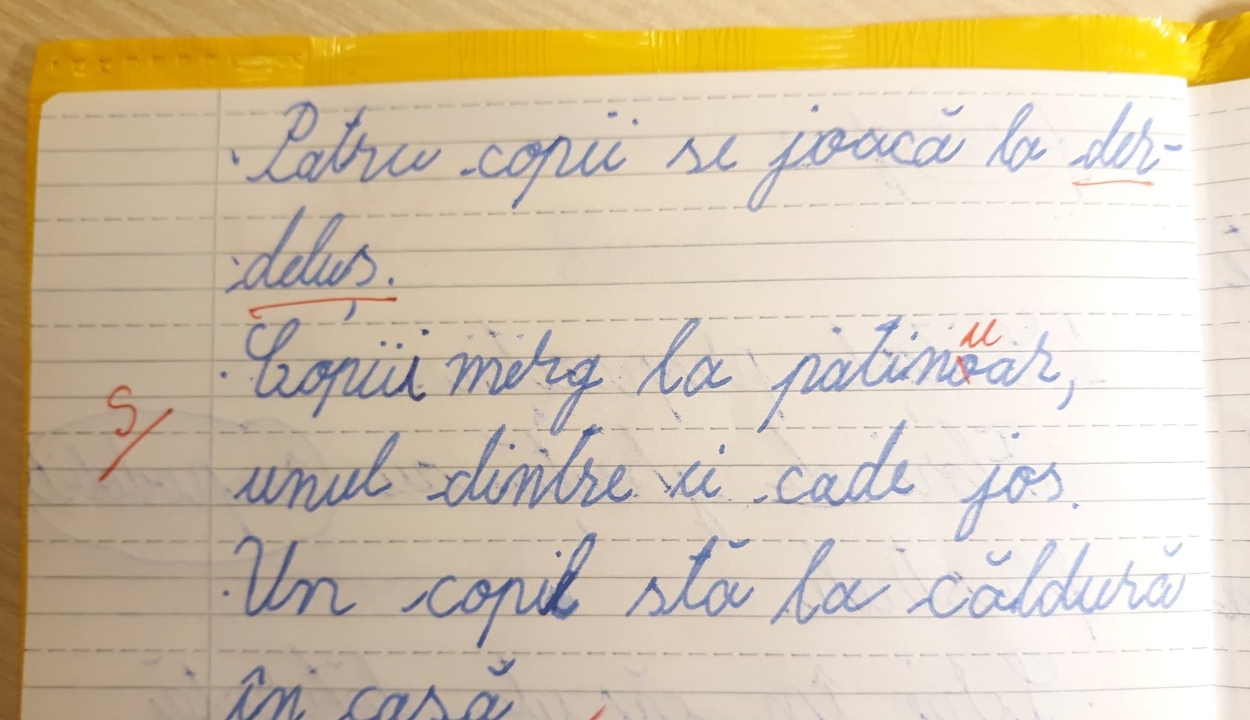 Patru copii se joacă la der-
deluș.
u
Copiii merg la patinoar,
S/
unul dintre ei cade jos.
Un copil stă la căldură
în casă